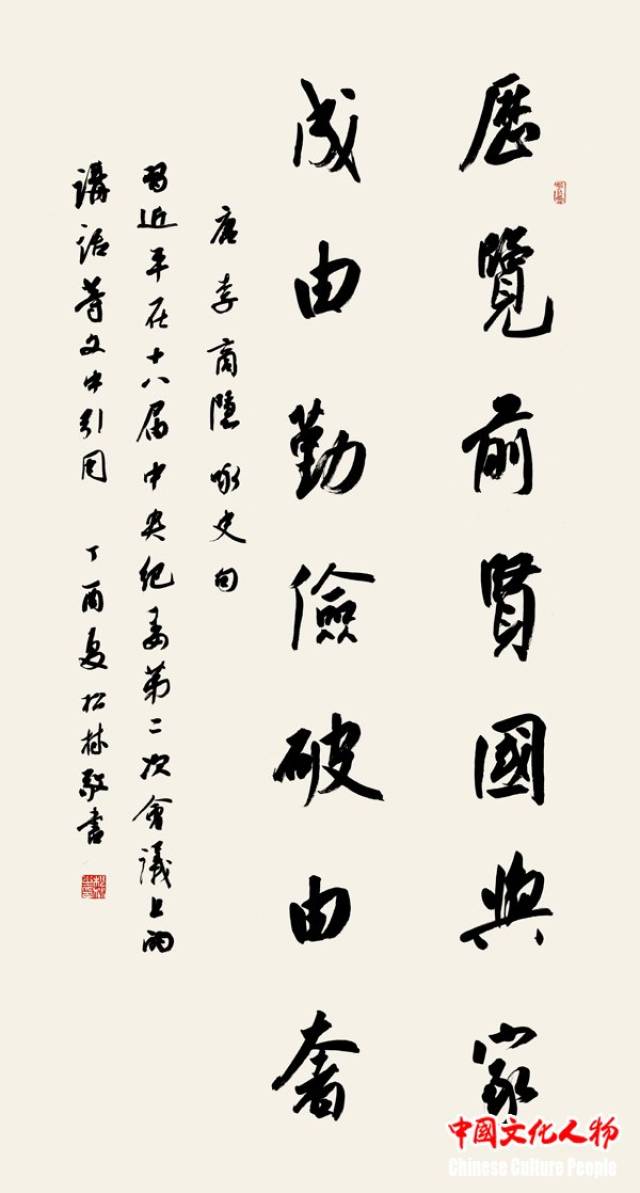 歷覽前賢國與家
成由勤儉破由奢
唐李商隱咏史句
習近平在十八屆中央纪委第二次會議上的
講話等文中引用 丁酉夏松林敬書
中國文化人物
Chinese Culture People